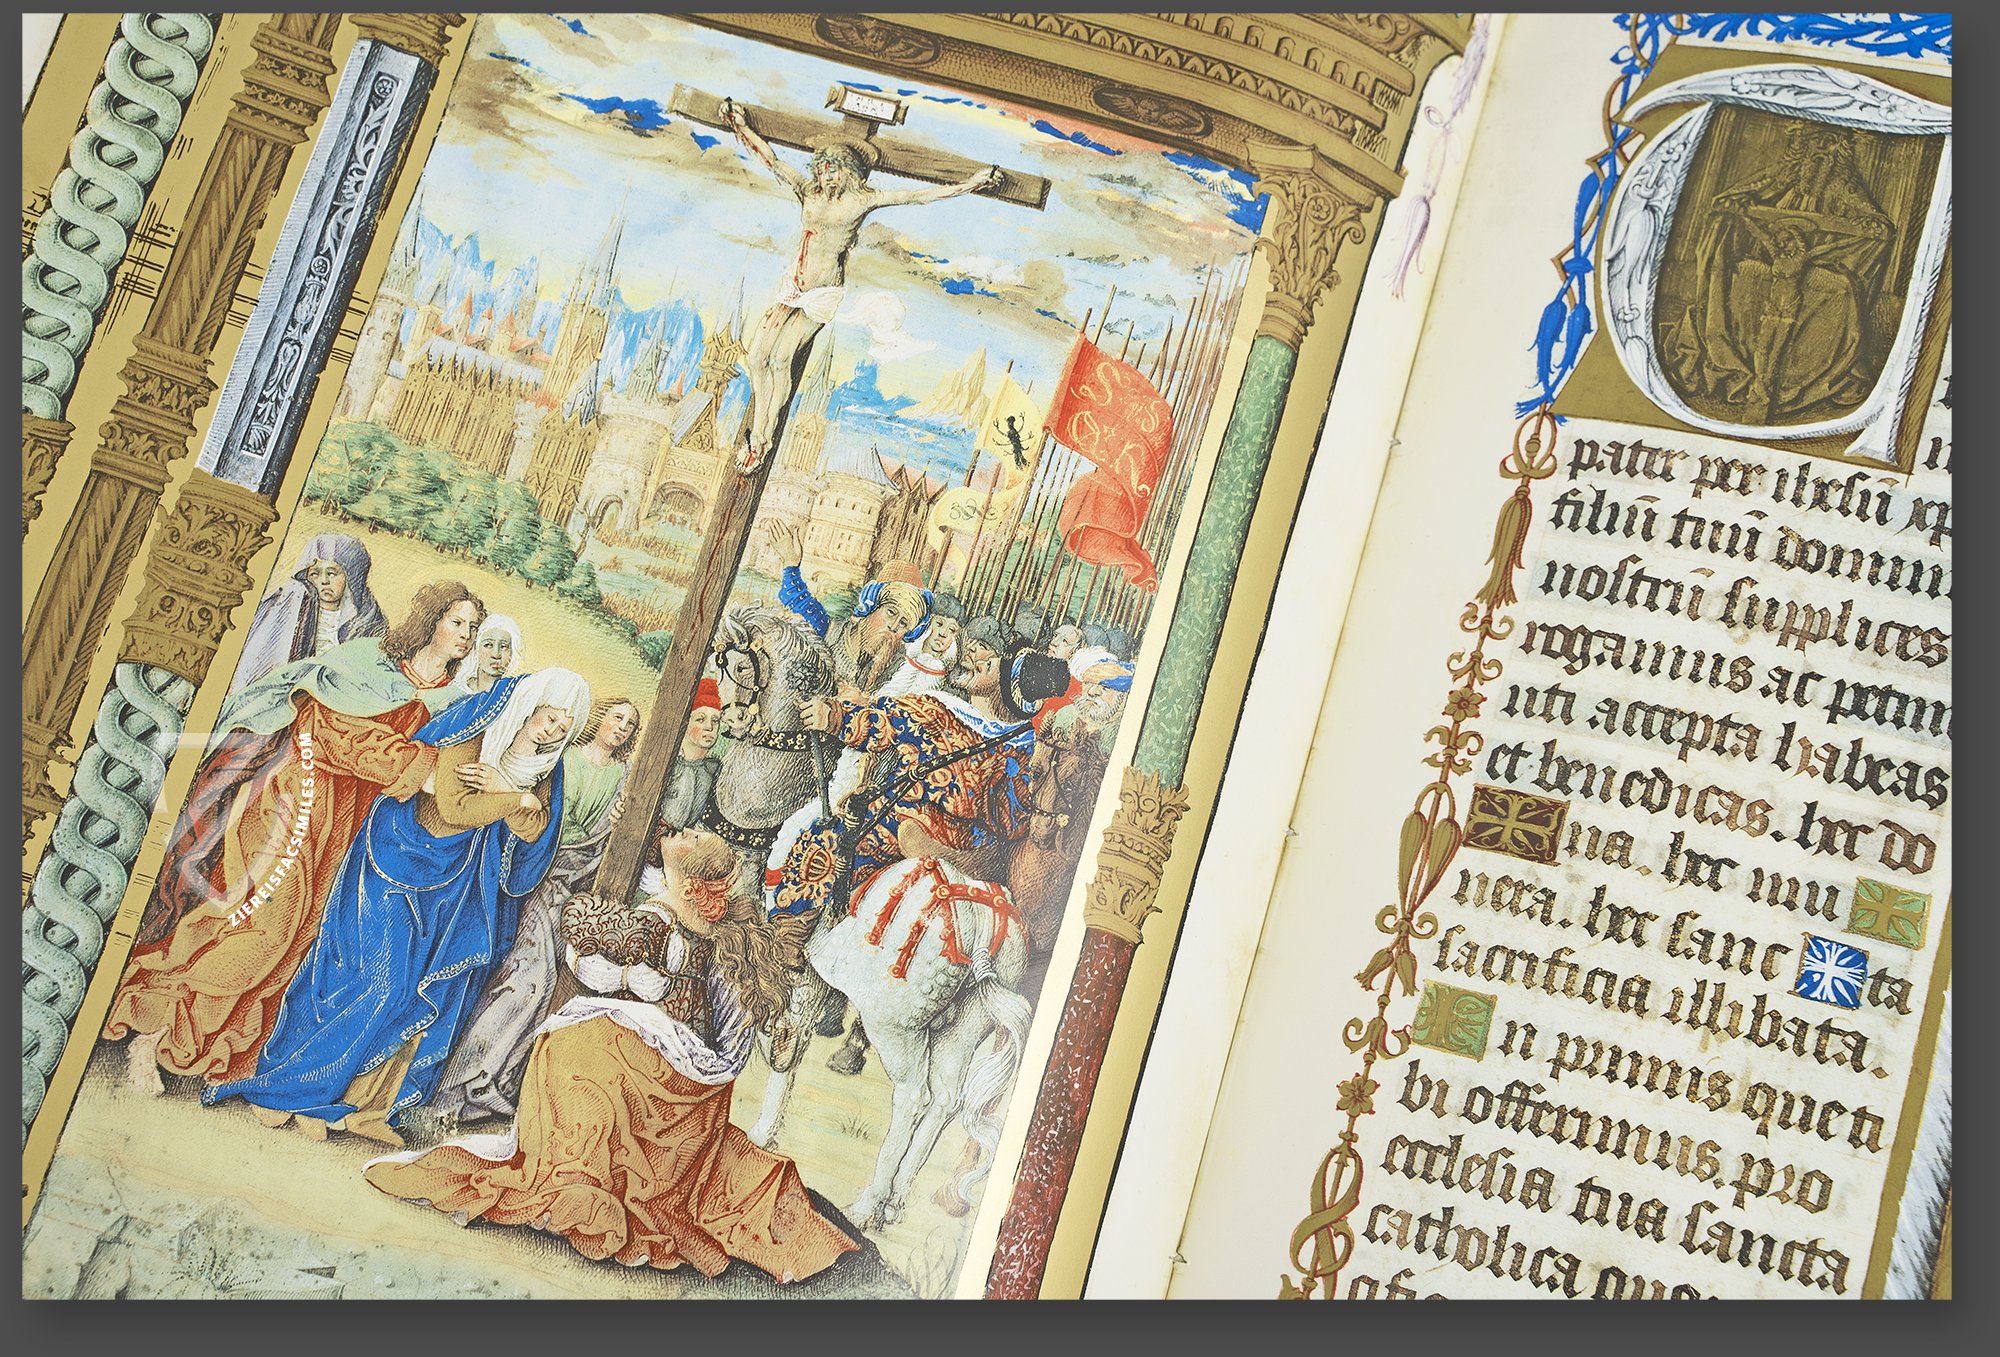 ZIEREISFACSIMILES.COM
T
pater per ihesū xp
filiū tuū domin
nostrū supplices
rogamus ac petim
uti accepta habeas
et benedicas. hec do
✠ na. hec mu ✠
nera. hec sanc ✠ ta
sacrificia illibata.
In primis que ti
bi offerimus. pro
ecclesia tua sancta
catholica qua